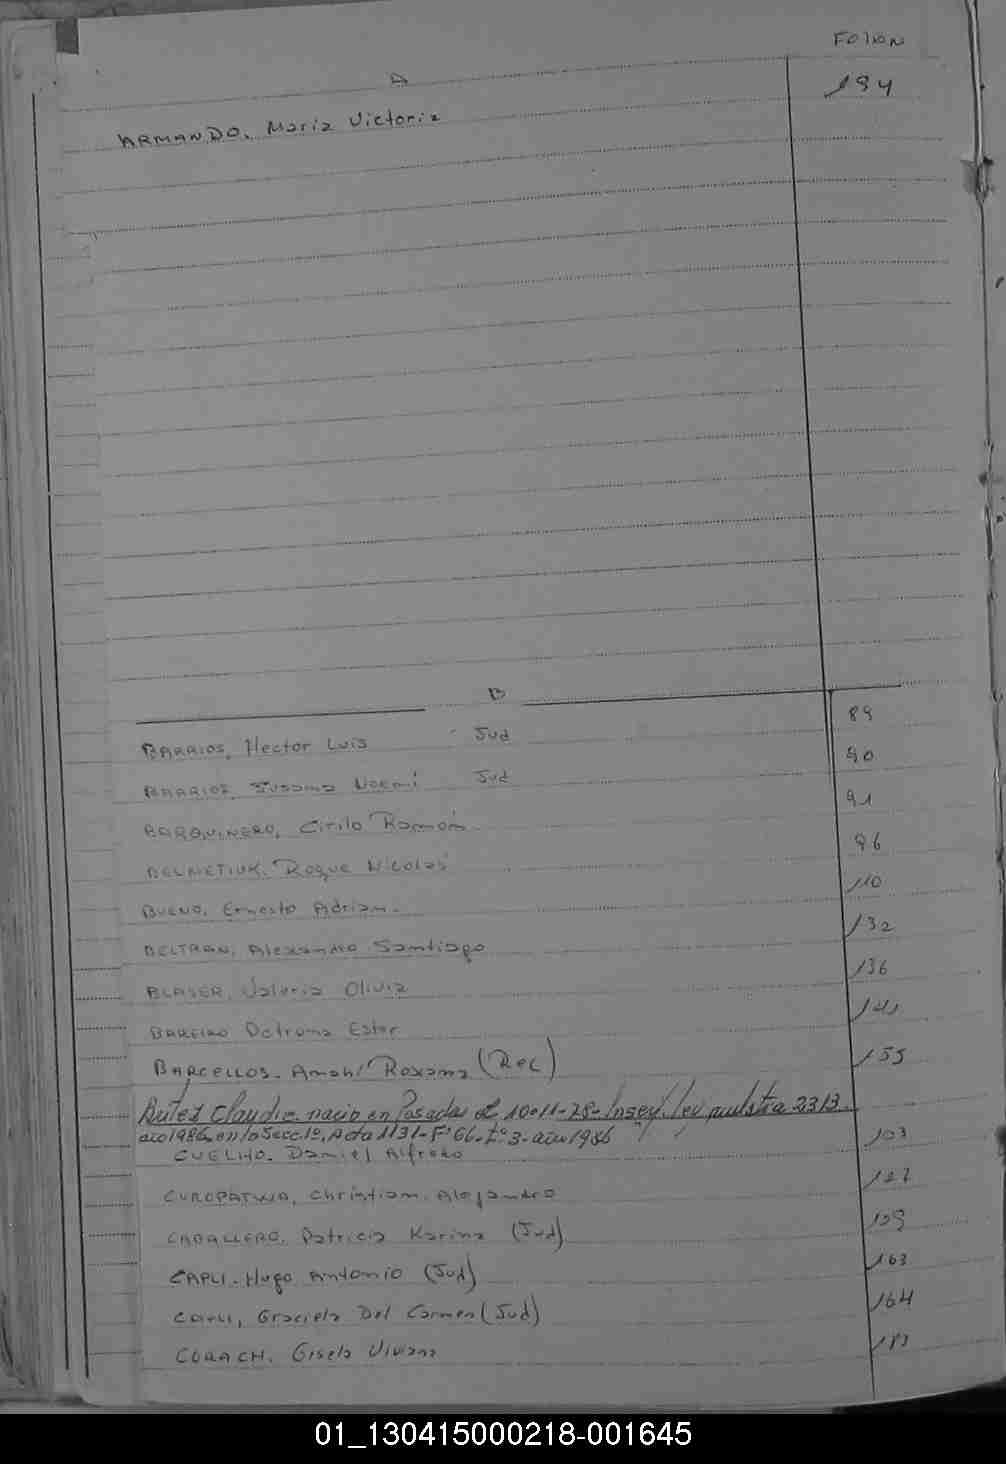 FOLION
A
ARMANDO, Maria Victoria 194
B
BARRIOS, Hector Luis Jud 89
BARRIOS, Susana Noemi Jud 90
BARQUINERO, Cirilo Ramón 91
BELNETIUK, Roque Nicolas 96
BUENO, Ernesto Adrian 110
BELTRAN, Alexandro Santiago 132
BLASER, Valeria Olivia 136
BAREIRO Petrona Ester 141
BARCELLOS, Amahi Roxana (Rec) 155
Butez Claudia nacio en Posadas el 10-11-78 - ley 2313
año 1986, en la Secc. 1º, Acta 1131 - Fº 66 - Tº 3 - año 1986
CUELHO, Daniel Alfredo 103
CUROPATWA, Christian Alejandro
CABALLERO, Patricia Karina (Jud)
CAPLI, Hugo Antonio (Jud) 163
CAPLI, Graciela Del Carmen (Jud) 164
CORACH, Gisela Viviana
01_130415000218-001645